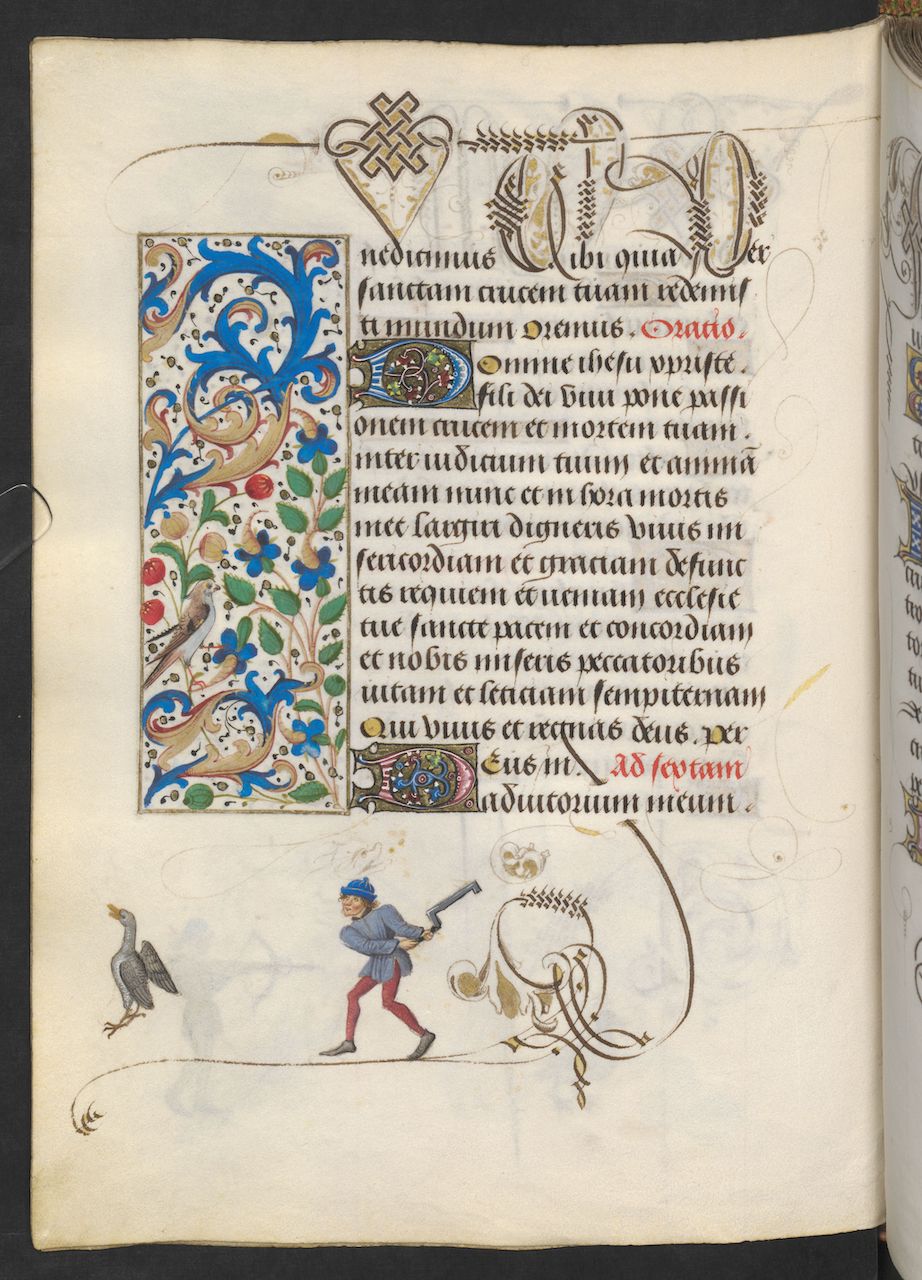 nedicimus Tibi quia Per
sanctam crucem tuam redemis
ti mundum Oremus. Oratio.
Domine ihesu xpriste.
fili dei vivi pone passi
onem crucem et mortem tuam.
inter iudicium tuum et animā
meam nunc et in hora mortis
mee largiri digneris vivis mi
sericordiam et graciam defunc
tis requiem et veniam ecclesie
tue sancte pacem et concordiam
et nobis miseris peccatoribus
vitam et leticiam sempiternam
Qui vivis et regnas deus. per
Deus in. Ad sextam
adiutorium meum.